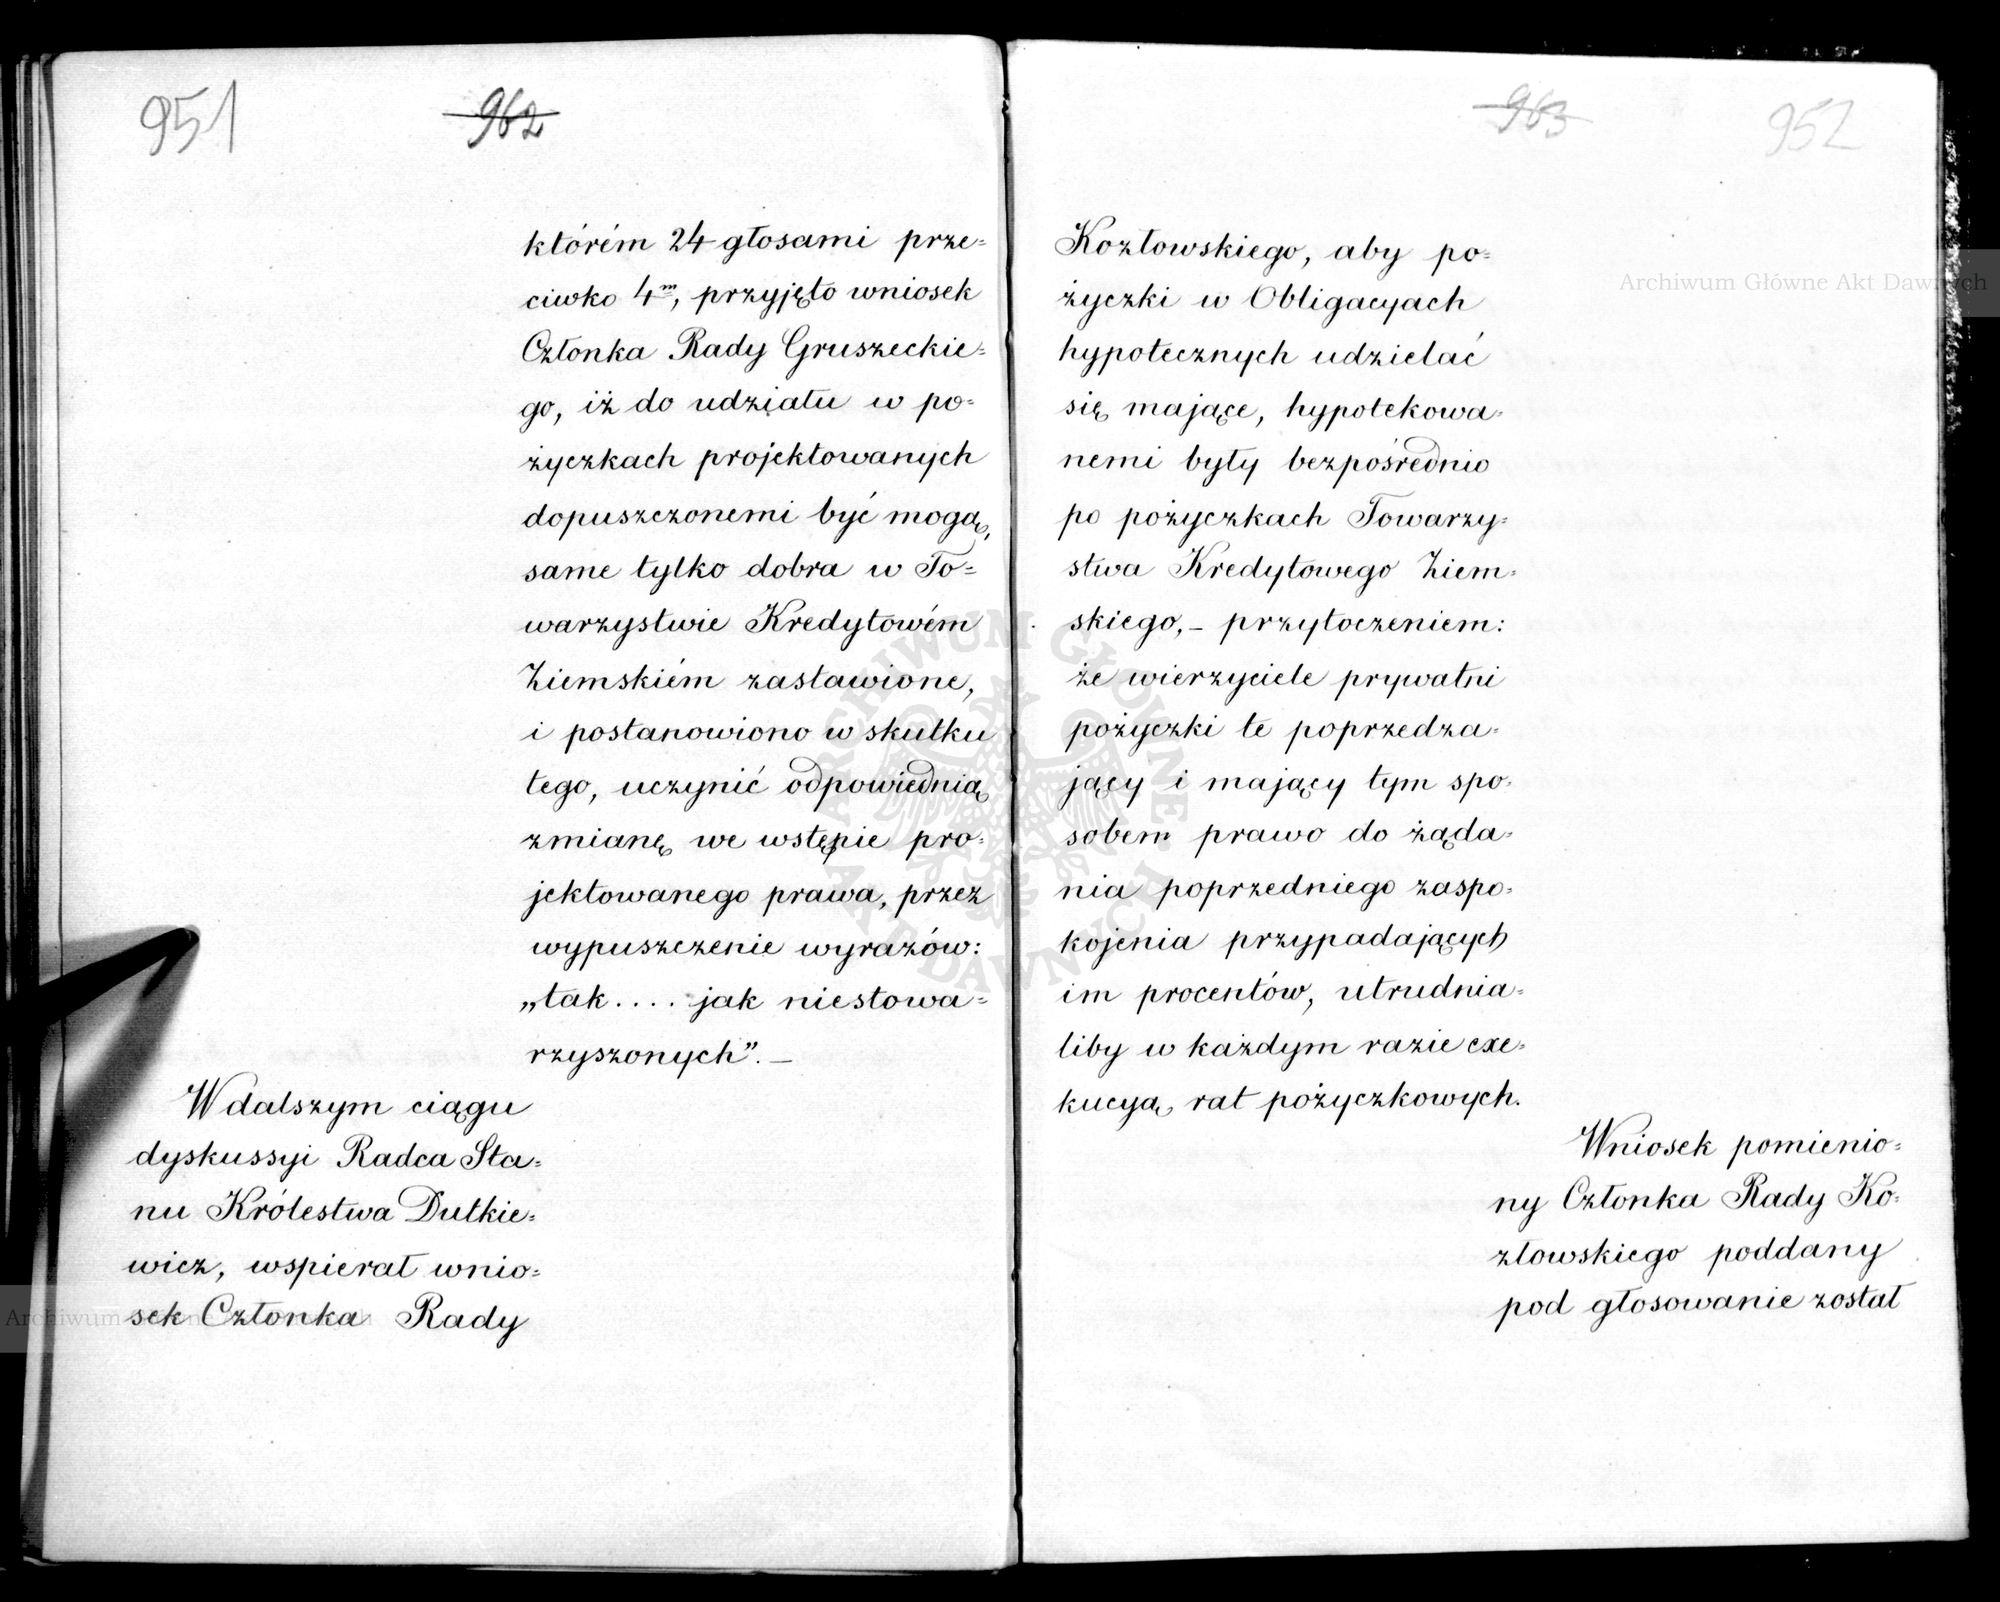 951
962
którém 24 głosami prze=
ciwko 4m, przyjęto wniosek
Członka Rady Gruszeckie=
go, iż do udziału w po=
życzkach projektowanych
dopuszczonemi być mogą,
same tylko dobra w To=
warzystwie Kredytowém
Ziemskiém zastawione,
i postanowiono w skutku
tego, uczynić odpowiednią
zmianę we wstępie pro=
jektowanego prawa, przez
wypuszczenie wyrazów:
„tak.... jak niestowa=
rzyszonych”. —
W dalszym ciągu
dyskussyi Radca Sta=
nu Królestwa Dutkie=
wicz, wspierał wnio=
sek Członka Rady
963
952
Kozłowskiego, aby po=
życzki w Obligacyach
hypotecznych udzielać
się mające, hypotekowa=
nemi były bezpośrednio
po pożyczkach Towarzy=
stwa Kredytowego Ziem=
skiego, — przytoczeniem:
że wierzyciele prywatni
pożyczki te poprzedza=
jący i mający tym spo=
sobem prawo do żąda=
nia poprzedniego zaspo=
kojenia przypadających
im procentów, utrudnia=
liby w każdym razie exe=
kucyą rat pożyczkowych.
Wniosek pomienio=
ny Członka Rady Ko=
złowskiego poddany
pod głosowanie został
Archiwum Główne Akt Dawnych
ARCHIWUM GŁÓWNE AKT DAWNYCH
Archiwum